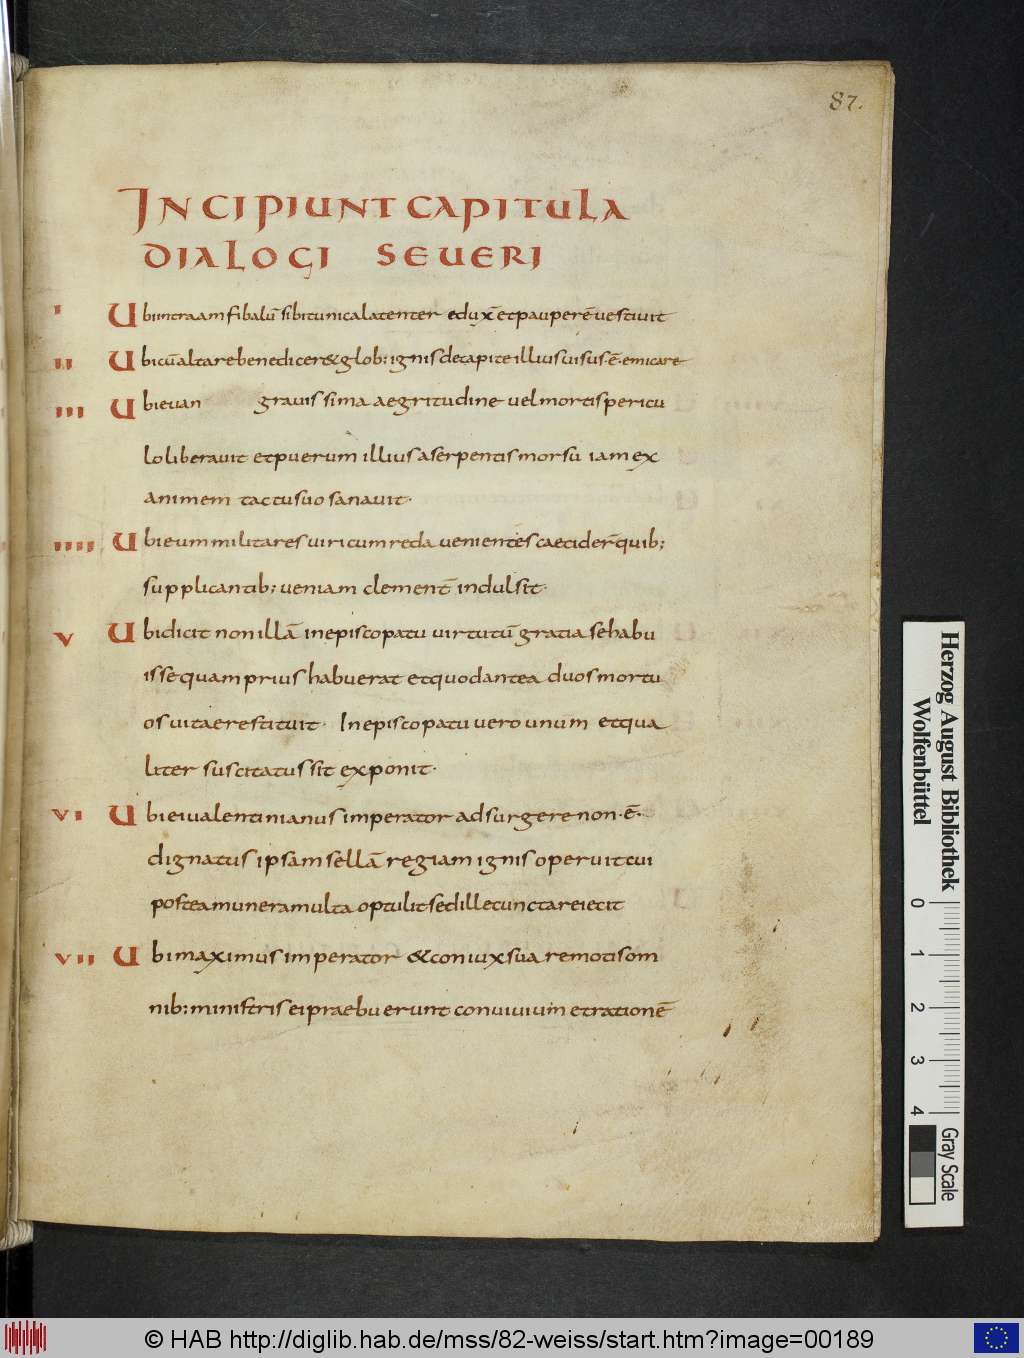 87.
INCIPIUNT CAPITULA
DIALOGI SEUERI
I Ubi intra amfibalū sibi tunicalatenter eduxͭ et pauperē uestiuit
II Ubi cū altare benedicer& glob; ignis de capite illius uisus·ē· emicare
III Ubi euan grauissima aegritudine uel mortis pericu
lo liberauit et puerum illius a serpentis morsu iam ex
animem tactu suo sanauit·
IIII Ubi eum militares uiri cum reda uenientes caeciderͭ quib;
supplicantib; ueniam clementͭ indulsit·
V Ubi dicit non illā in episcopatu uirtutū gratia se habu
isse quam prius habuerat et quod antea duos mortu
os uitae restituit· In episcopatu uero unum et qua
liter suscitatus sit exponit·
VI Ubi ei ualentinianus imperator adsurgere non·ē·
dignatus ipsam sellā regiam ignis operuit cui
postea munera multa optulit sed ille cuncta reiecit
VII Ubi maximus imperator & coniux sua remotis om
nib; ministris ei praebuerunt conuiuium et rationē
Herzog August Bibliothek
Wolfenbüttel
0 1 2 3 4
Gray Scale
© HAB http://diglib.hab.de/mss/82-weiss/start.htm?image=00189